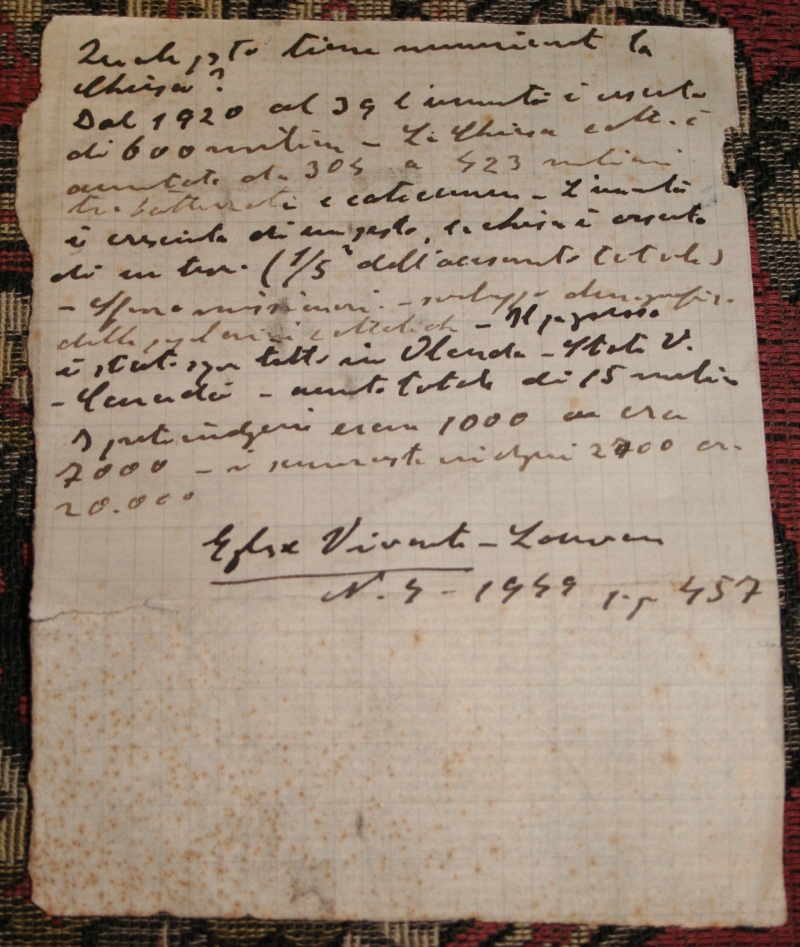 Quale posto tiene numericamt la
Chiesa?
Dal 1920 al 39 l'umanità è cresciuta
di 600 milioni - La Chiesa catt. è
aumentata da 304 a 423 milioni
tra battezzati e catecumeni - L'umanità
è cresciuta di un sesto, la chiesa è cresciuta
di un terzo. (1/5 dell'aumento totale)
- sforzo missionari. - sviluppo demografico
delle popolazioni cattoliche - Il progresso
è stato sopra tutto in Olanda - Stati U.
- Canadà - aumento totale di 15 milioni
I preti indigeni erano 1000 ora
7000 - i seminaristi indigeni 2700 or.
20.000
Eglise Vivante - Louvain
N. 4 - 1949 pag 457